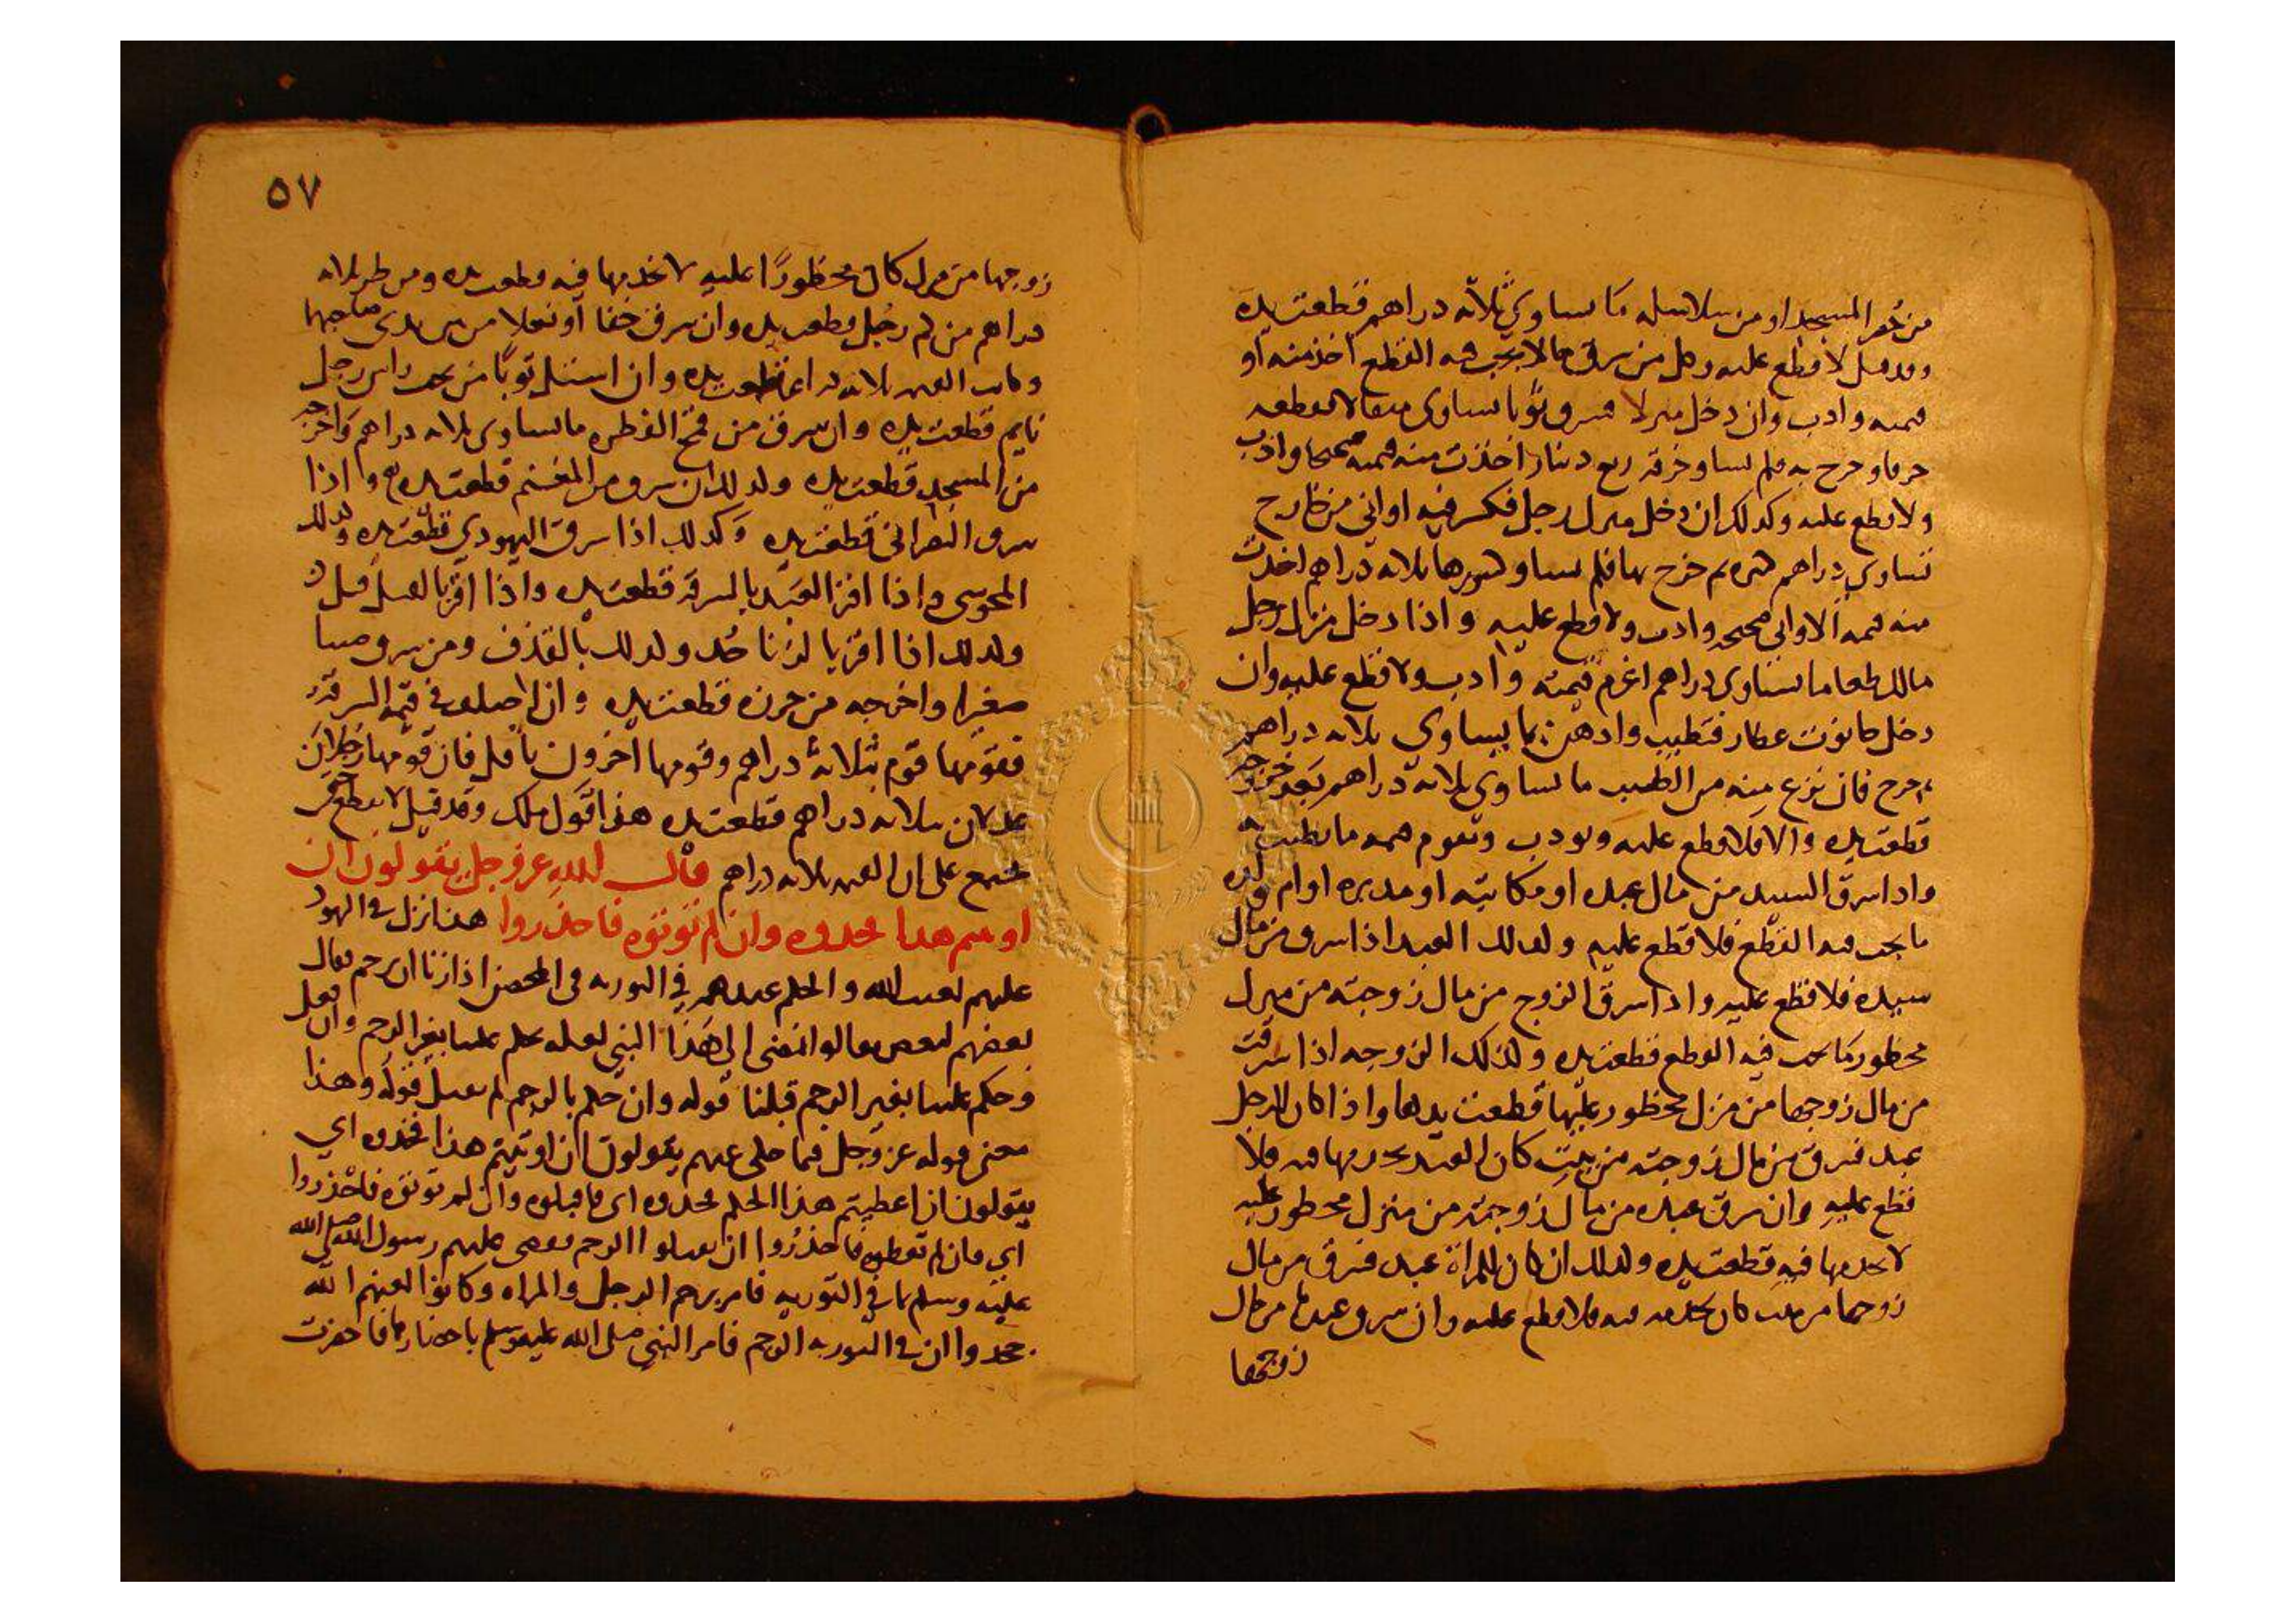 من حُصر المسجد او من سلاسله ما يساوي ثلاثة دراهم قطعت يده
وقد قيل لا قطع عليه وكل من سرق ما لا يجب فيه القطع اخذ منه او
قيمته وادب وان دخل منزلا فسرق ثوبا يساوي مثقالا فقطعه
خرقا وخرج به فلم يساو خرقه ربع دينار اخذت منه قيمته صحيحا وادب
ولا قطع عليه وكذلك ان دخل منزل رجل فكسر فيه اواني من
تساوي دراهم كثيرة ثم خرج بها فلم يساو كسورها ثلاثة دراهم اخذت
منه قيمة الاواني صحيحة وادب ولا قطع عليه واذا دخل منزل رجل
فاكل طعاما يساوي دراهم اغرم قيمته وادب ولا قطع عليه وان
دخل حانوت عطار فتطيب وادهن بما يساوي ثلاثة دراهم
ثم خرج فان نزع منه من الطيب ما يساوي ثلاثة دراهم بعد خروجه
قطعت يده والا فلا قطع عليه ويودب وتقوم قيمة ما تطيب به
واذا سرق السيد من مال عبده او مكاتبه او مدبره او ام ولده
ما يجب فيه القطع فلا قطع عليه وكذلك العبد اذا سرق من مال
سيده فلا قطع عليه واذا سرق الزوج من مال زوجته من منزل
محظور ما يجب فيه القطع قطعت يده وكذلك الزوجه اذا سرقت
من مال زوجها من منزل محظور عليها قطعت يدها واذا كان للرجل
عبد فسرق من مال زوجته من بيت كان العبد يخدمها فيه فلا
قطع عليه وان سرق عبده من مال زوجته من منزل محظور عليه
لا يخدمها فيه قطعت يده وكذلك ان كان للمراة عبد فسرق من مال
زوجها من بيت كان يخدمه فيه فلا قطع عليه وان سرق عبدها من مال
زوجها
٥٧
زوجها من منزل كان محظورًا عليه لا يخدمها فيه قطعت يده ومن طر ثلاثة
دراهم من كم رجل قطعت يده وان سرق خفا او نعلا من بين يدي صاحبها
وكانت القيمه ثلاثة دراهم قطعت يده وان استل ثوبا من تحت راس رجل
نايم قطعت يده وان سرق من قمح الفطره ما يساوي ثلاثة دراهم واخرجه
من المسجد قطعت يده وكذلك ان سرق من المغنم قطعت يده واذا
سرق النصراني قطعت يده وكذلك اذا سرق اليهودي قطعت يده وكذلك
المجوسي واذا اقر العبد بالسرقة قطعت يده واذا اقر بالقتل قتل
وكذلك اذا اقر بالزنا حُد وكذلك بالقذف ومن سرق صبيا
صغيرا واخرجه من حرزه قطعت يده وان اختلف في قيمة السرقة
فقومها قوم بثلاثة دراهم وقومها اخرون باقل فان قومها رجلان
عدلان بثلاثة دراهم قطعت يده هذا قول ملك وقد قيل لا يقطع حتى
يجتمع على ان القيمه ثلاثة دراهم قال الله عز وجل يقولون ان
اوتيتم هذا فخذوه وان لم تؤتوه فاحذروا هذا نزل في اليهود
عليهم لعنة الله والحكم عندهم في التوريه في المحصن اذا زنا ان يرجم فقال
بعضهم لبعض تعالوا نمضي الي هذا النبي لعله يحكم علينا بغير الرجم وان فعل
وحكم علينا بغير الرجم قبلنا قوله وان حكم بالرجم لم نقبل قوله وهذا
معنى قوله عز وجل فيما حكى عنهم يقولون ان اوتيتم هذا فخذوه اي
يقولون ان اعطيتم هذا الحكم فخذوه اي فاقبلوه وان لم تؤتوه فاحذروا
اي فان لم تعطوه فاحذروا ان تقبلوا الرجم فقضى عليهم رسول الله صلى الله
عليه وسلم بما في التوريه فامر برجم الرجل والمراه وكانوا لعنهم الله
جحدوا ان في التوريه الرجم فامر النبي صلى الله عليه وسلم باحضارها فاحضرت